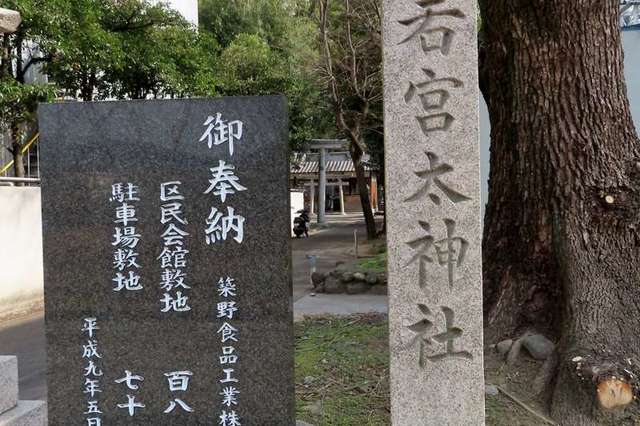 若宮太神社
御奉納
築野食品工業株
区民会館敷地 百八
駐車場敷地 七十
平成九年五